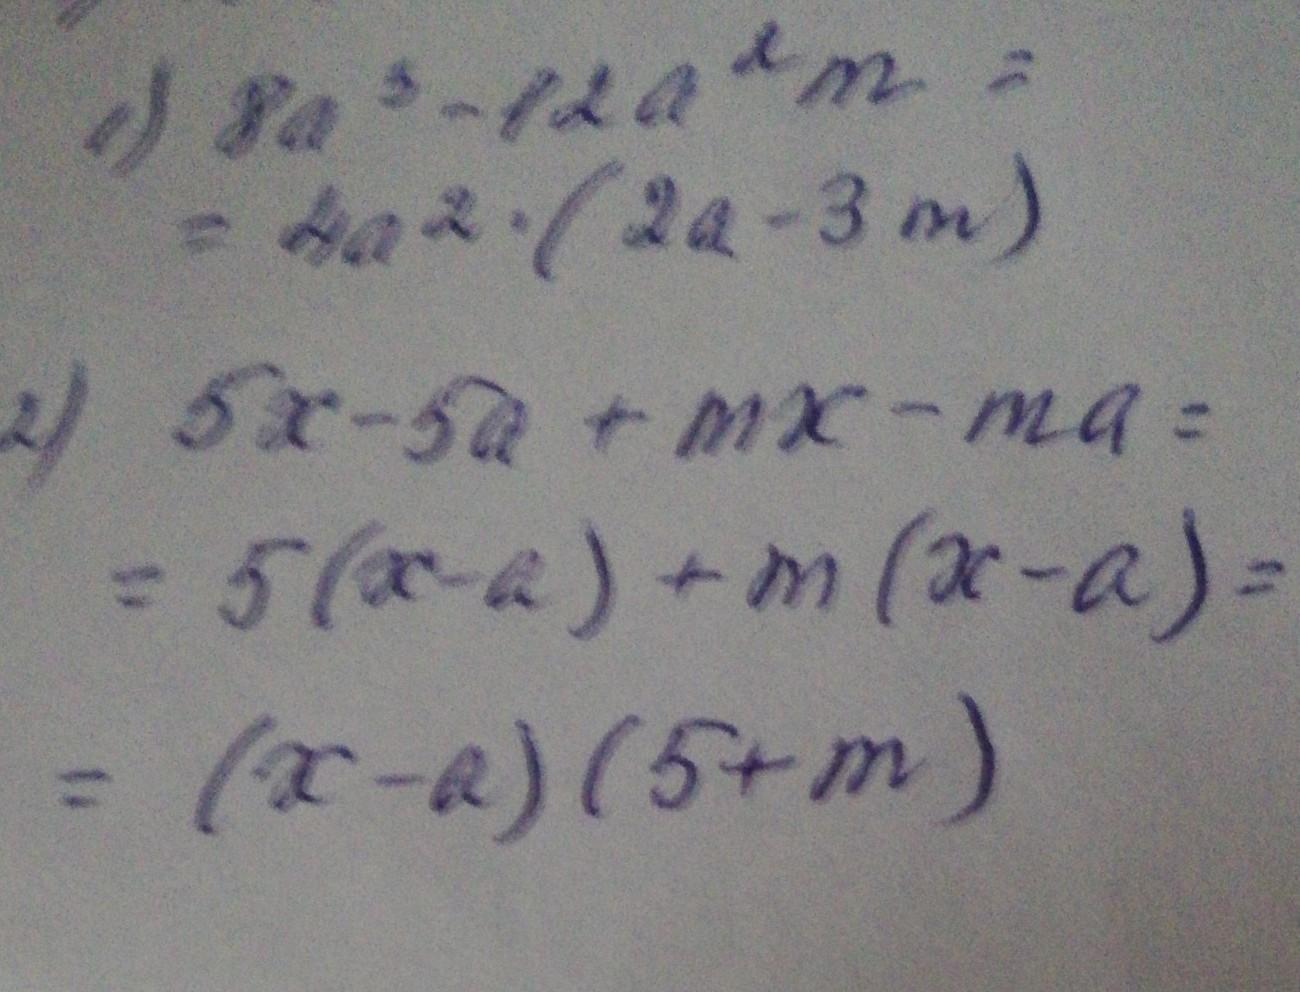 1) 8a³ - 12a²m =
= 4a² · (2a - 3m)
2) 5x - 5a + mx - ma =
= 5(x - a) + m(x - a) =
= (x - a)(5 + m)